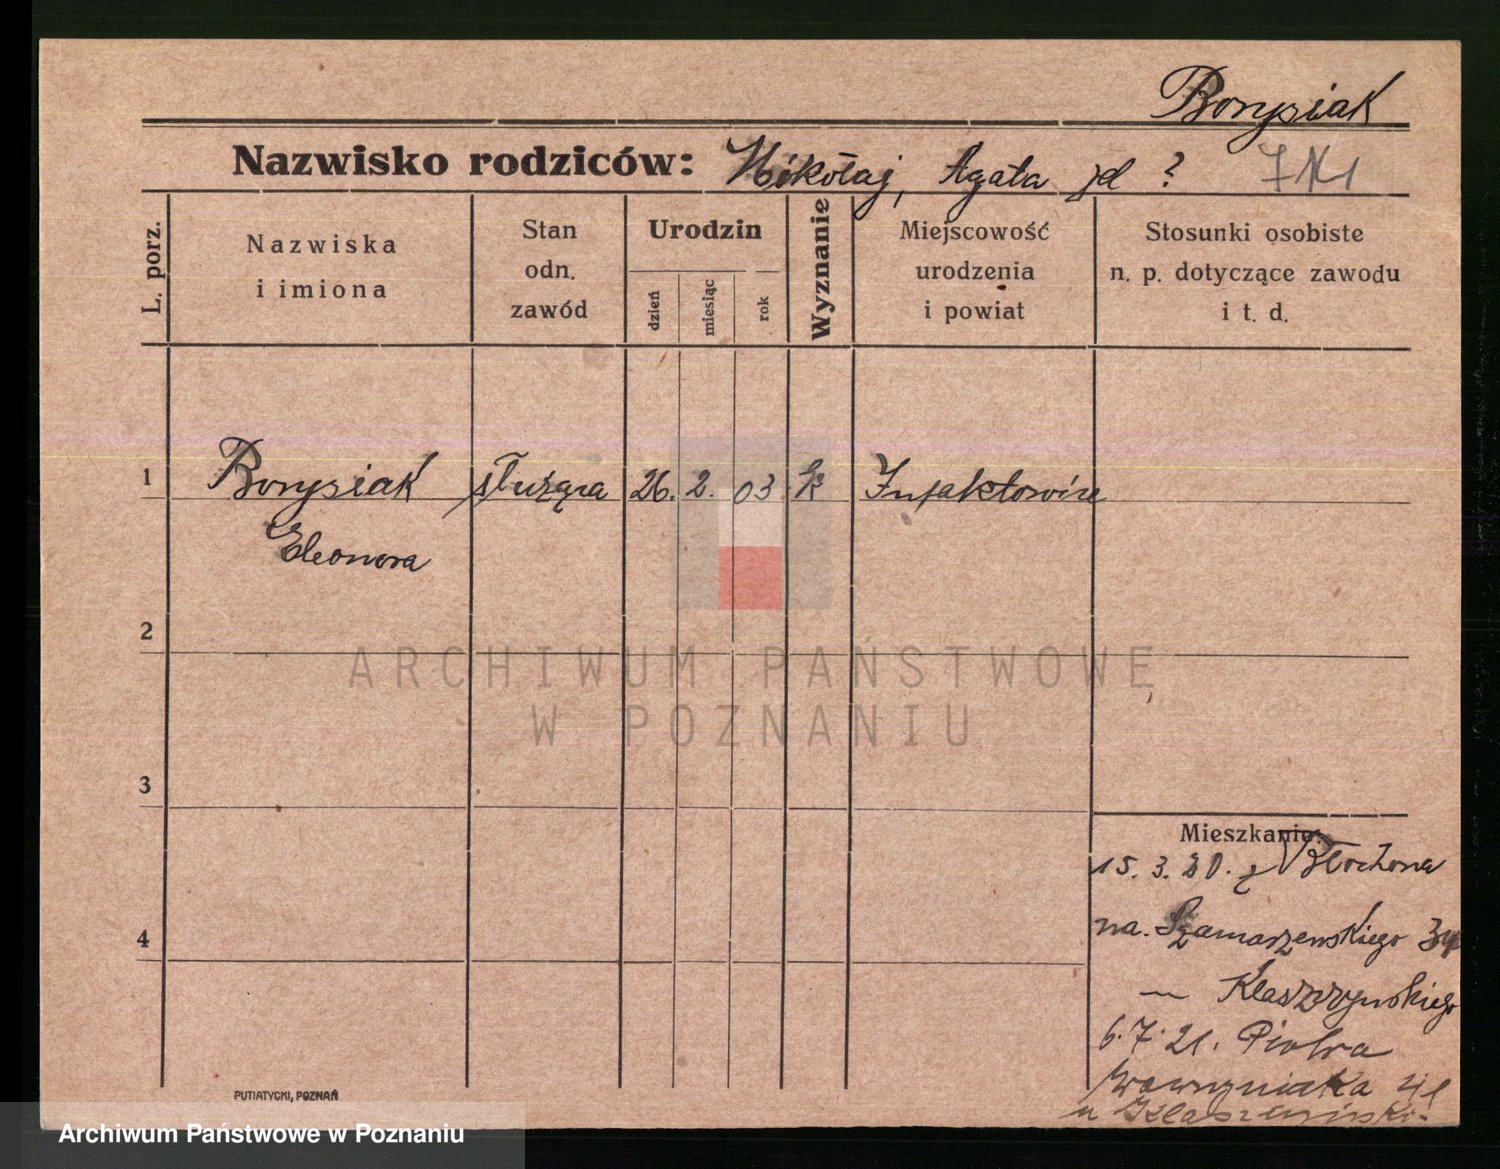 Borysiak
Nazwisko rodziców: Mikołaj, Agata jd ?
L. porz.
Nazwiska
i imiona
Stan
odn.
zawód
Urodzin
dzień
miesiąc
rok
Wyznanie
Miejscowość
urodzenia
i powiat
Stosunki osobiste
n. p. dotyczące zawodu
i t. d.
1 Borysiak służąca 26. 2. 03. k
Eleonora
2
3
4
Mieszkanie:
15. 3. 20. z
na. Szamarzewskiego
— Klaszczyńskiego
6. 7. 21. Piotra
Wawrzyniaka 41
u
PUTIATYCKI, POZNAŃ
ARCHIWUM PAŃSTWOWE
W POZNANIU
Archiwum Państwowe w Poznaniu